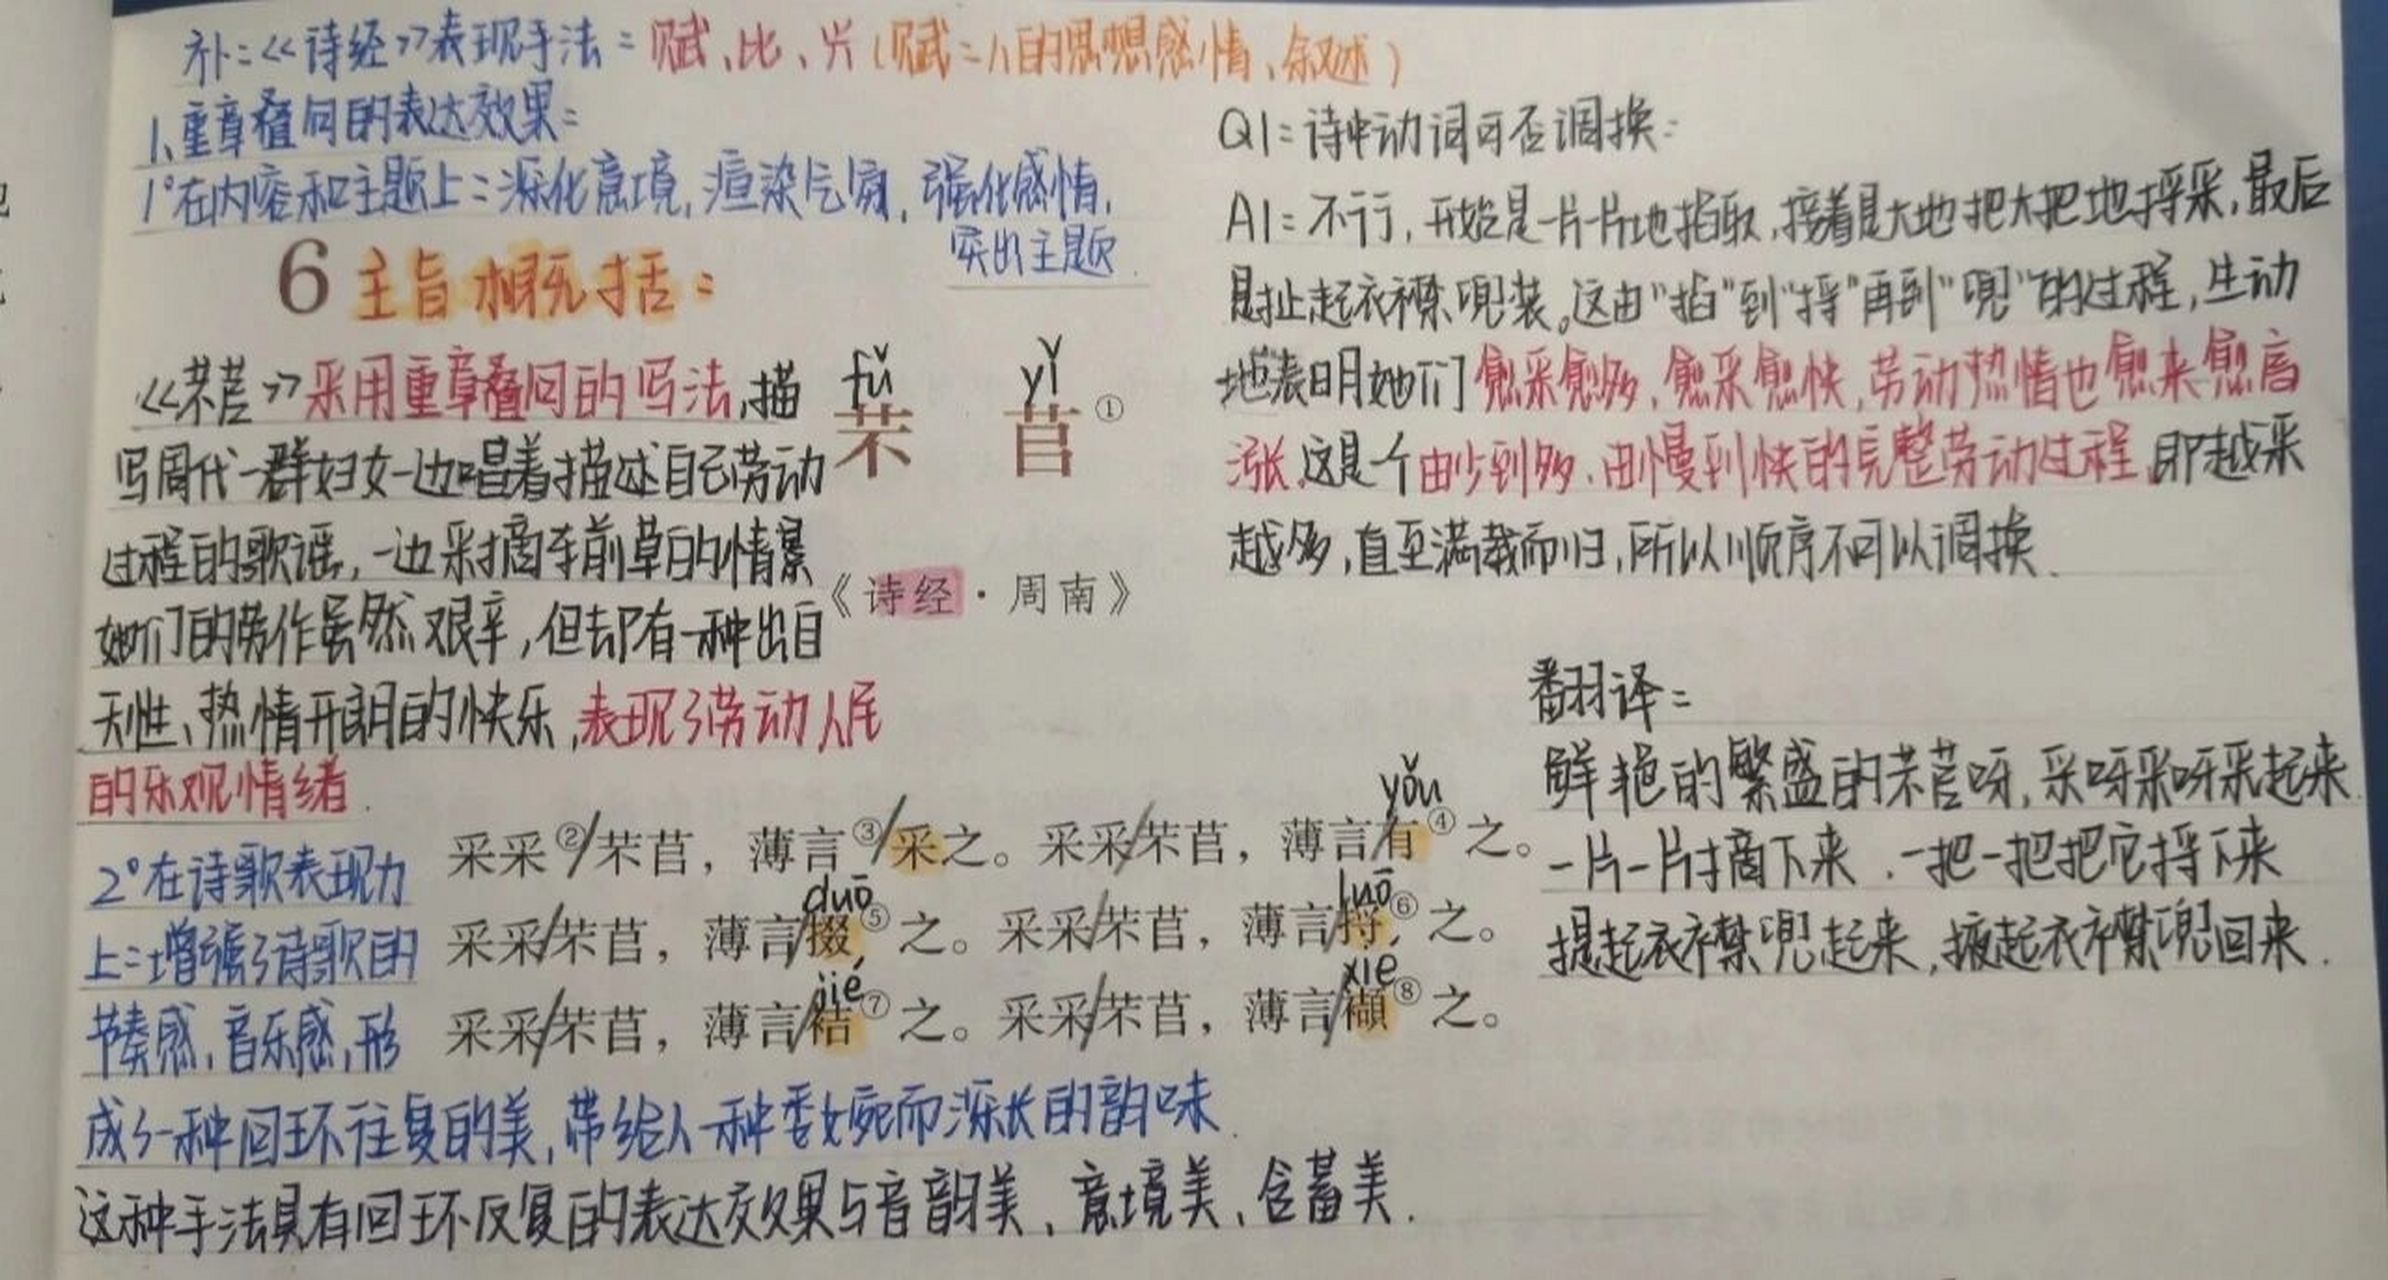 补:《诗经》表现手法:赋、比、兴(赋:人的思想感情、叙述)
1、重章叠句的表达效果:
1°在内容和主题上:深化意境,渲染气氛,强化感情,
突出主题.
6 主旨概括:
《芣苢》采用重章叠句的写法,描
写周代一群妇女一边唱着描述自己劳动
过程的歌谣,一边采摘车前草的情景
她们的劳作虽然艰辛,但却有一种出自
天性、热情开朗的快乐,表现了劳动人民
的乐观情绪.
fú yǐ
芣 苢①
《诗经·周南》
Q1:诗中动词可否调换:
A1:不行,开始是一片片地掐取,接着是大地把大把地捋采,最后
是扯起衣襟兜装。这由"掐"到"捋"再到"兜"的过程,生动
地表明她们愈采愈多,愈采愈快,劳动热情也愈来愈高
涨.这是个由少到多、由慢到快的完整劳动过程,即越采
越多,直至满载而归,所以顺序不可以调换.
翻译:
鲜艳的繁盛的芣苢呀,采呀采呀采起来.
一片一片摘下来.一把一把把它捋下来
提起衣襟兜起来,掖起衣襟兜回来.
yǒu
采采②/芣苢,薄言③/采之。采采/芣苢,薄言/有④之。
duō luō
采采/芣苢,薄言/掇⑤之。采采/芣苢,薄言/捋⑥之。
jié xié
采采/芣苢,薄言/袺⑦之。采采/芣苢,薄言/襭⑧之。
2°在诗歌表现力
上:增强了诗歌的
节奏感,音乐感,形
成了一种回环往复的美,带给人一种委婉而深长的韵味.
这种手法具有回环反复的表达效果与音韵美、意境美、含蓄美.